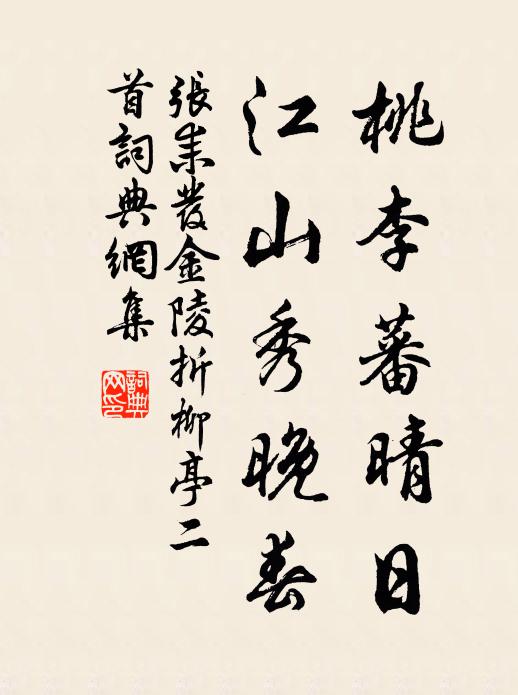 桃李蕃晴日
江山秀晚春
張耒發金陵折柳亭二
首詞典網集
詞典
网印